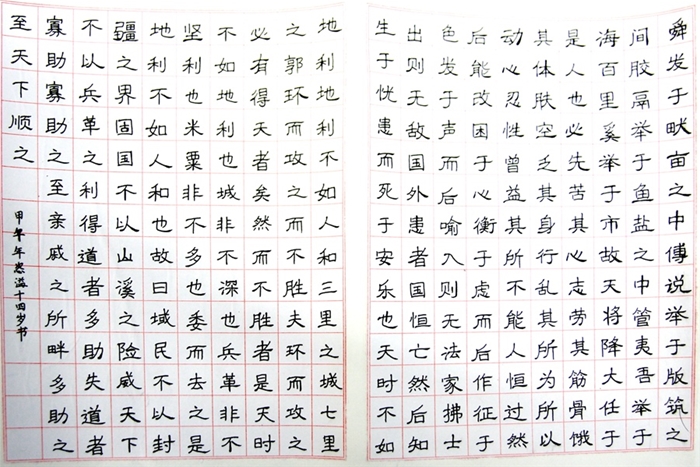 舜发于畎亩之中傅说举于版筑之
间胶鬲举于鱼盐之中管夷吾举于
海百里奚举于市故天将降大任于
是人也必先苦其心志劳其筋骨饿
其体肤空乏其身行乱其所为所以
动心忍性曾益其所不能人恒过然
后能改困于心衡于虑而后作征于
色发于声而后喻入则无法家拂士
出则无敌国外患者国恒亡然后知
生于忧患而死于安乐也天时不如
地利地利不如人和三里之城七里
之郭环而攻之而不胜夫环而攻之
必有得天者矣然而不胜者是天时
不如地利也城非不深也兵革非不
坚利也米粟非不多也委而去之是
地利不如人和也故曰域民不以封
疆之界固国不以山溪之险威天下
不以兵革之利得道者多助失道者
寡助寡助之至亲戚之所畔多助之
至天下顺之
甲午年溢十四岁书